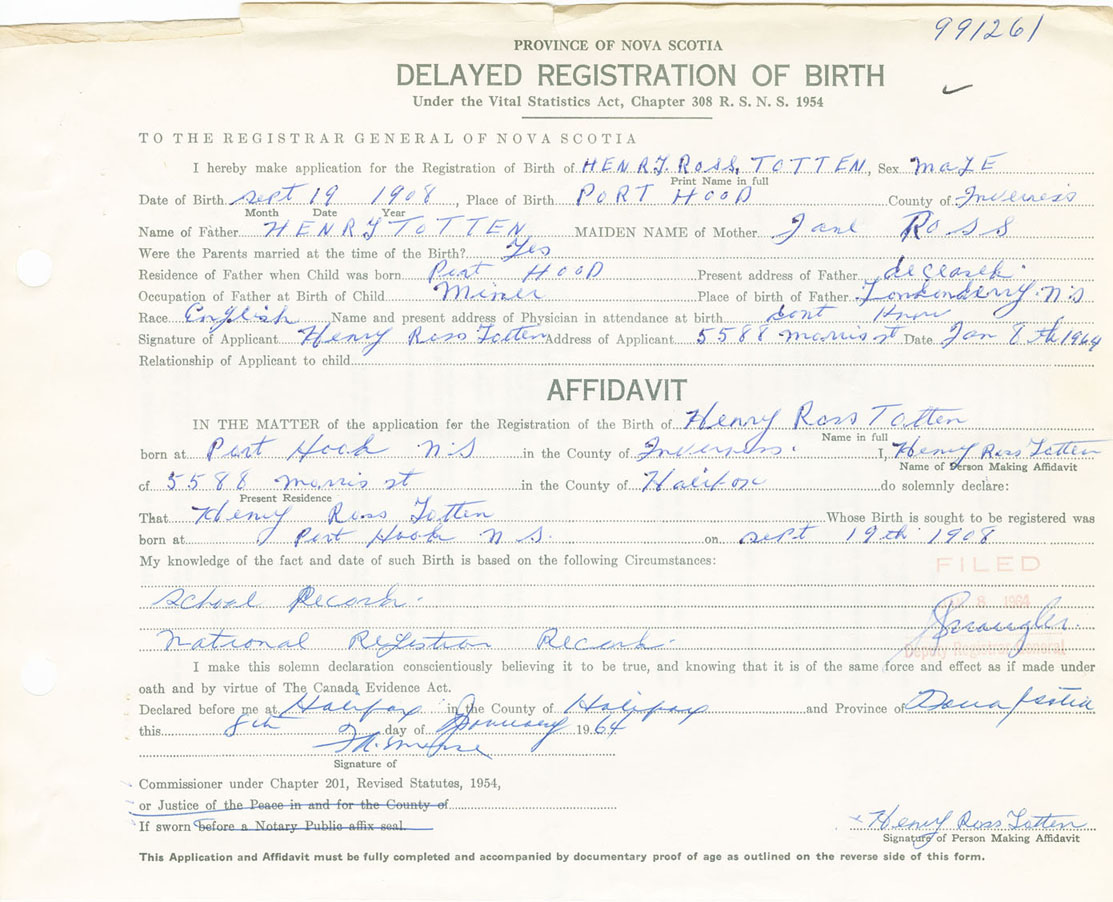 991261
PROVINCE OF NOVA SCOTIA
DELAYED REGISTRATION OF BIRTH
Under the Vital Statistics Act, Chapter 308 R. S. N. S. 1954
TO THE REGISTRAR GENERAL OF NOVA SCOTIA
I hereby make application for the Registration of Birth of HENRY. ROSS. TOTTEN, Sex MaLE
Print Name in full
Date of Birth sept 19 1908, Place of Birth PORT HOOD County of Inverness
Month Date Year
Name of Father HENRY TOTTEN MAIDEN NAME of Mother Jane Ross
Were the Parents married at the time of the Birth? Yes
Residence of Father when Child was born Port HOOD Present address of Father deceased.
Occupation of Father at Birth of Child Miner Place of birth of Father Londonderry. N.S
Race English Name and present address of Physician in attendance at birth dont Know
Signature of Applicant Henry Ross Totten Address of Applicant 5588 morris st Date Jan 8th 1964
Relationship of Applicant to child
AFFIDAVIT
IN THE MATTER of the application for the Registration of the Birth of Henry Ross Totten
Name in full
born at Port Hood N.S in the County of Inverness. I, Henry Ross Totten
Name of Person Making Affidavit
of 5588 morris st in the County of Halifax do solemnly declare:
Present Residence
That Henry Ross Totten Whose Birth is sought to be registered was
born at Port Hood N.S. on sept 19th 1908
My knowledge of the fact and date of such Birth is based on the following Circumstances:
FILED
School Record.
8 1964
National Registion Record.
Deputy Registrar General
I make this solemn declaration conscientiously believing it to be true, and knowing that it is of the same force and effect as if made under
oath and by virtue of The Canada Evidence Act.
Declared before me at Halifax in the County of Halifax and Province of Nova Scotia
this 8th day of January 1964
Signature of
Commissioner under Chapter 201, Revised Statutes, 1954,
or Justice of the Peace in and for the County of
If sworn before a Notary Public affix seal.
Henry Ross Totten
Signature of Person Making Affidavit
This Application and Affidavit must be fully completed and accompanied by documentary proof of age as outlined on the reverse side of this form.